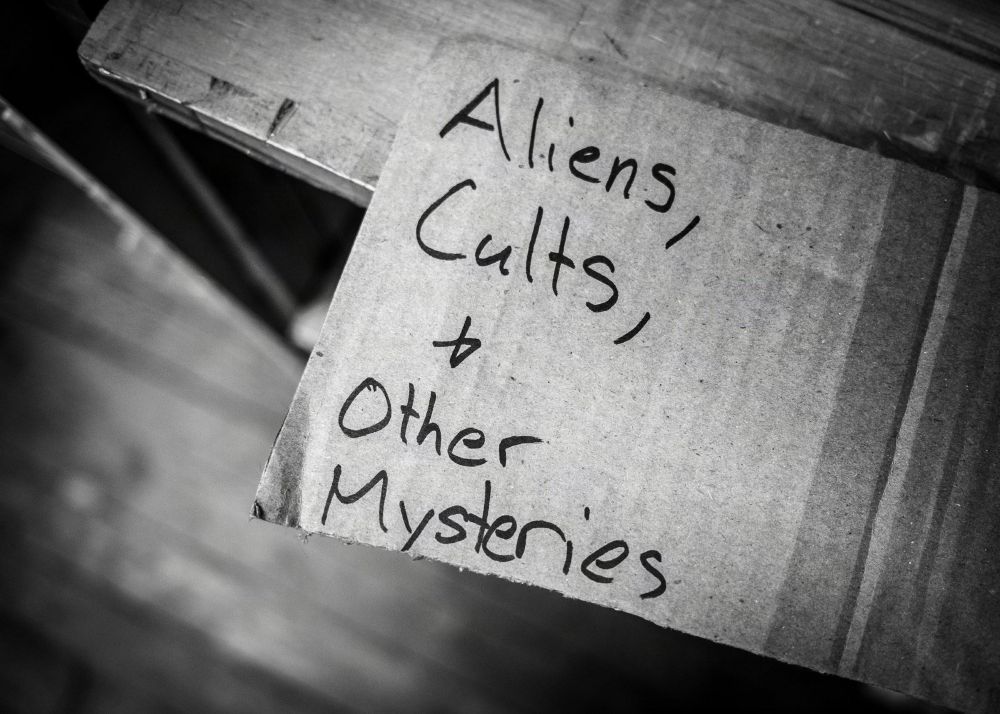 Aliens,
Cults,
+
Other
Mysteries